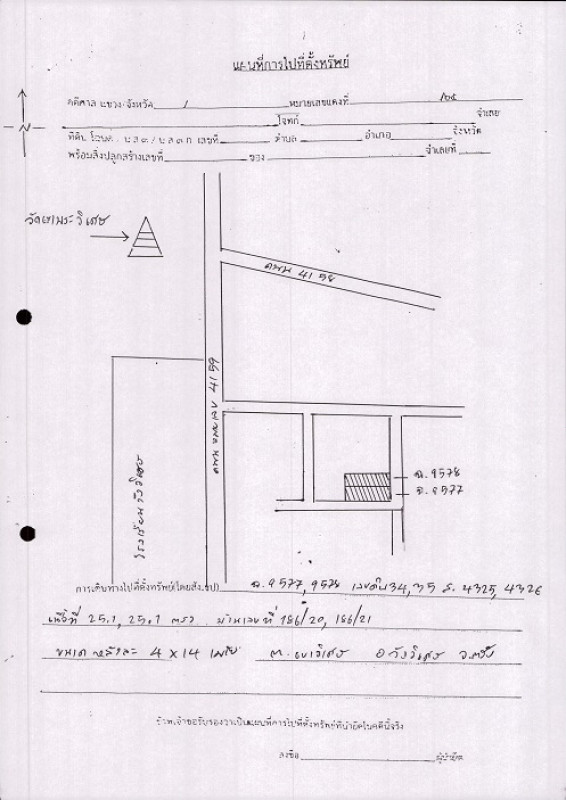 แผนที่การไปที่ตั้งทรัพย์
คดีศาล แขวง/จังหวัด / หมายเลขแดงที่ /๒๕
โจทก์ จำเลย
ที่ดิน โฉนด น.ส.๓/น.ส.๓ ก เลขที่ ตำบล อำเภอ จังหวัด
พร้อมสิ่งปลูกสร้างเลขที่ ของ จำเลยที่
N
วัดเขาพระวิเศษ
ถนน 4158
ถนน 4159
โรงเรียนวังวิเศษ
ฉ.9578
ฉ.9577
การเดินทางไปที่ตั้งทรัพย์(โดยสังเขป) ฉ.9577,9578 เลขดิน 34,35 ส. 4325, 4326
เนื้อที่ 25.1, 25.1 ตรว. บ้านเลขที่ 186/20, 186/21
ขนาด หลังละ 4 x 14 เมตร ต.เขาวิเศษ อ.วังวิเศษ จ.ตรัง
ข้าพเจ้าขอรับรองว่าเป็นแผนที่การไปที่ตั้งทรัพย์ที่นำยึดในคดีนี้จริง
ลงชื่อ ผู้นำยึด